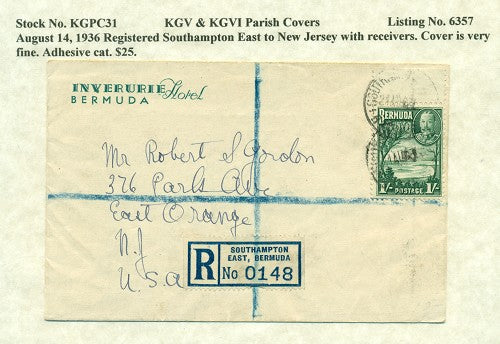 Stock No. KGPC31 KGV & KGVI Parish Covers Listing No. 6357
August 14, 1936 Registered Southampton East to New Jersey with receivers. Cover is very
fine. Adhesive cat. $25.
INVERURIE Hotel
BERMUDA
BERMUDA
1/- POSTAGE 1/-
Mr Robert S Gordon
376 Park Ave
East Orange
N.J
U.S.A
R
SOUTHAMPTON
EAST, BERMUDA
No 0148